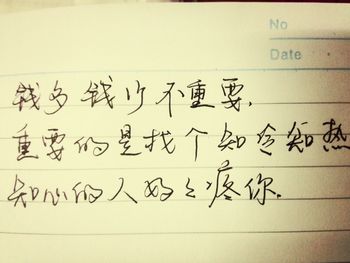 No
Date
钱多钱少不重要,
重要的是找个知冷知热
知心的人好好疼你.